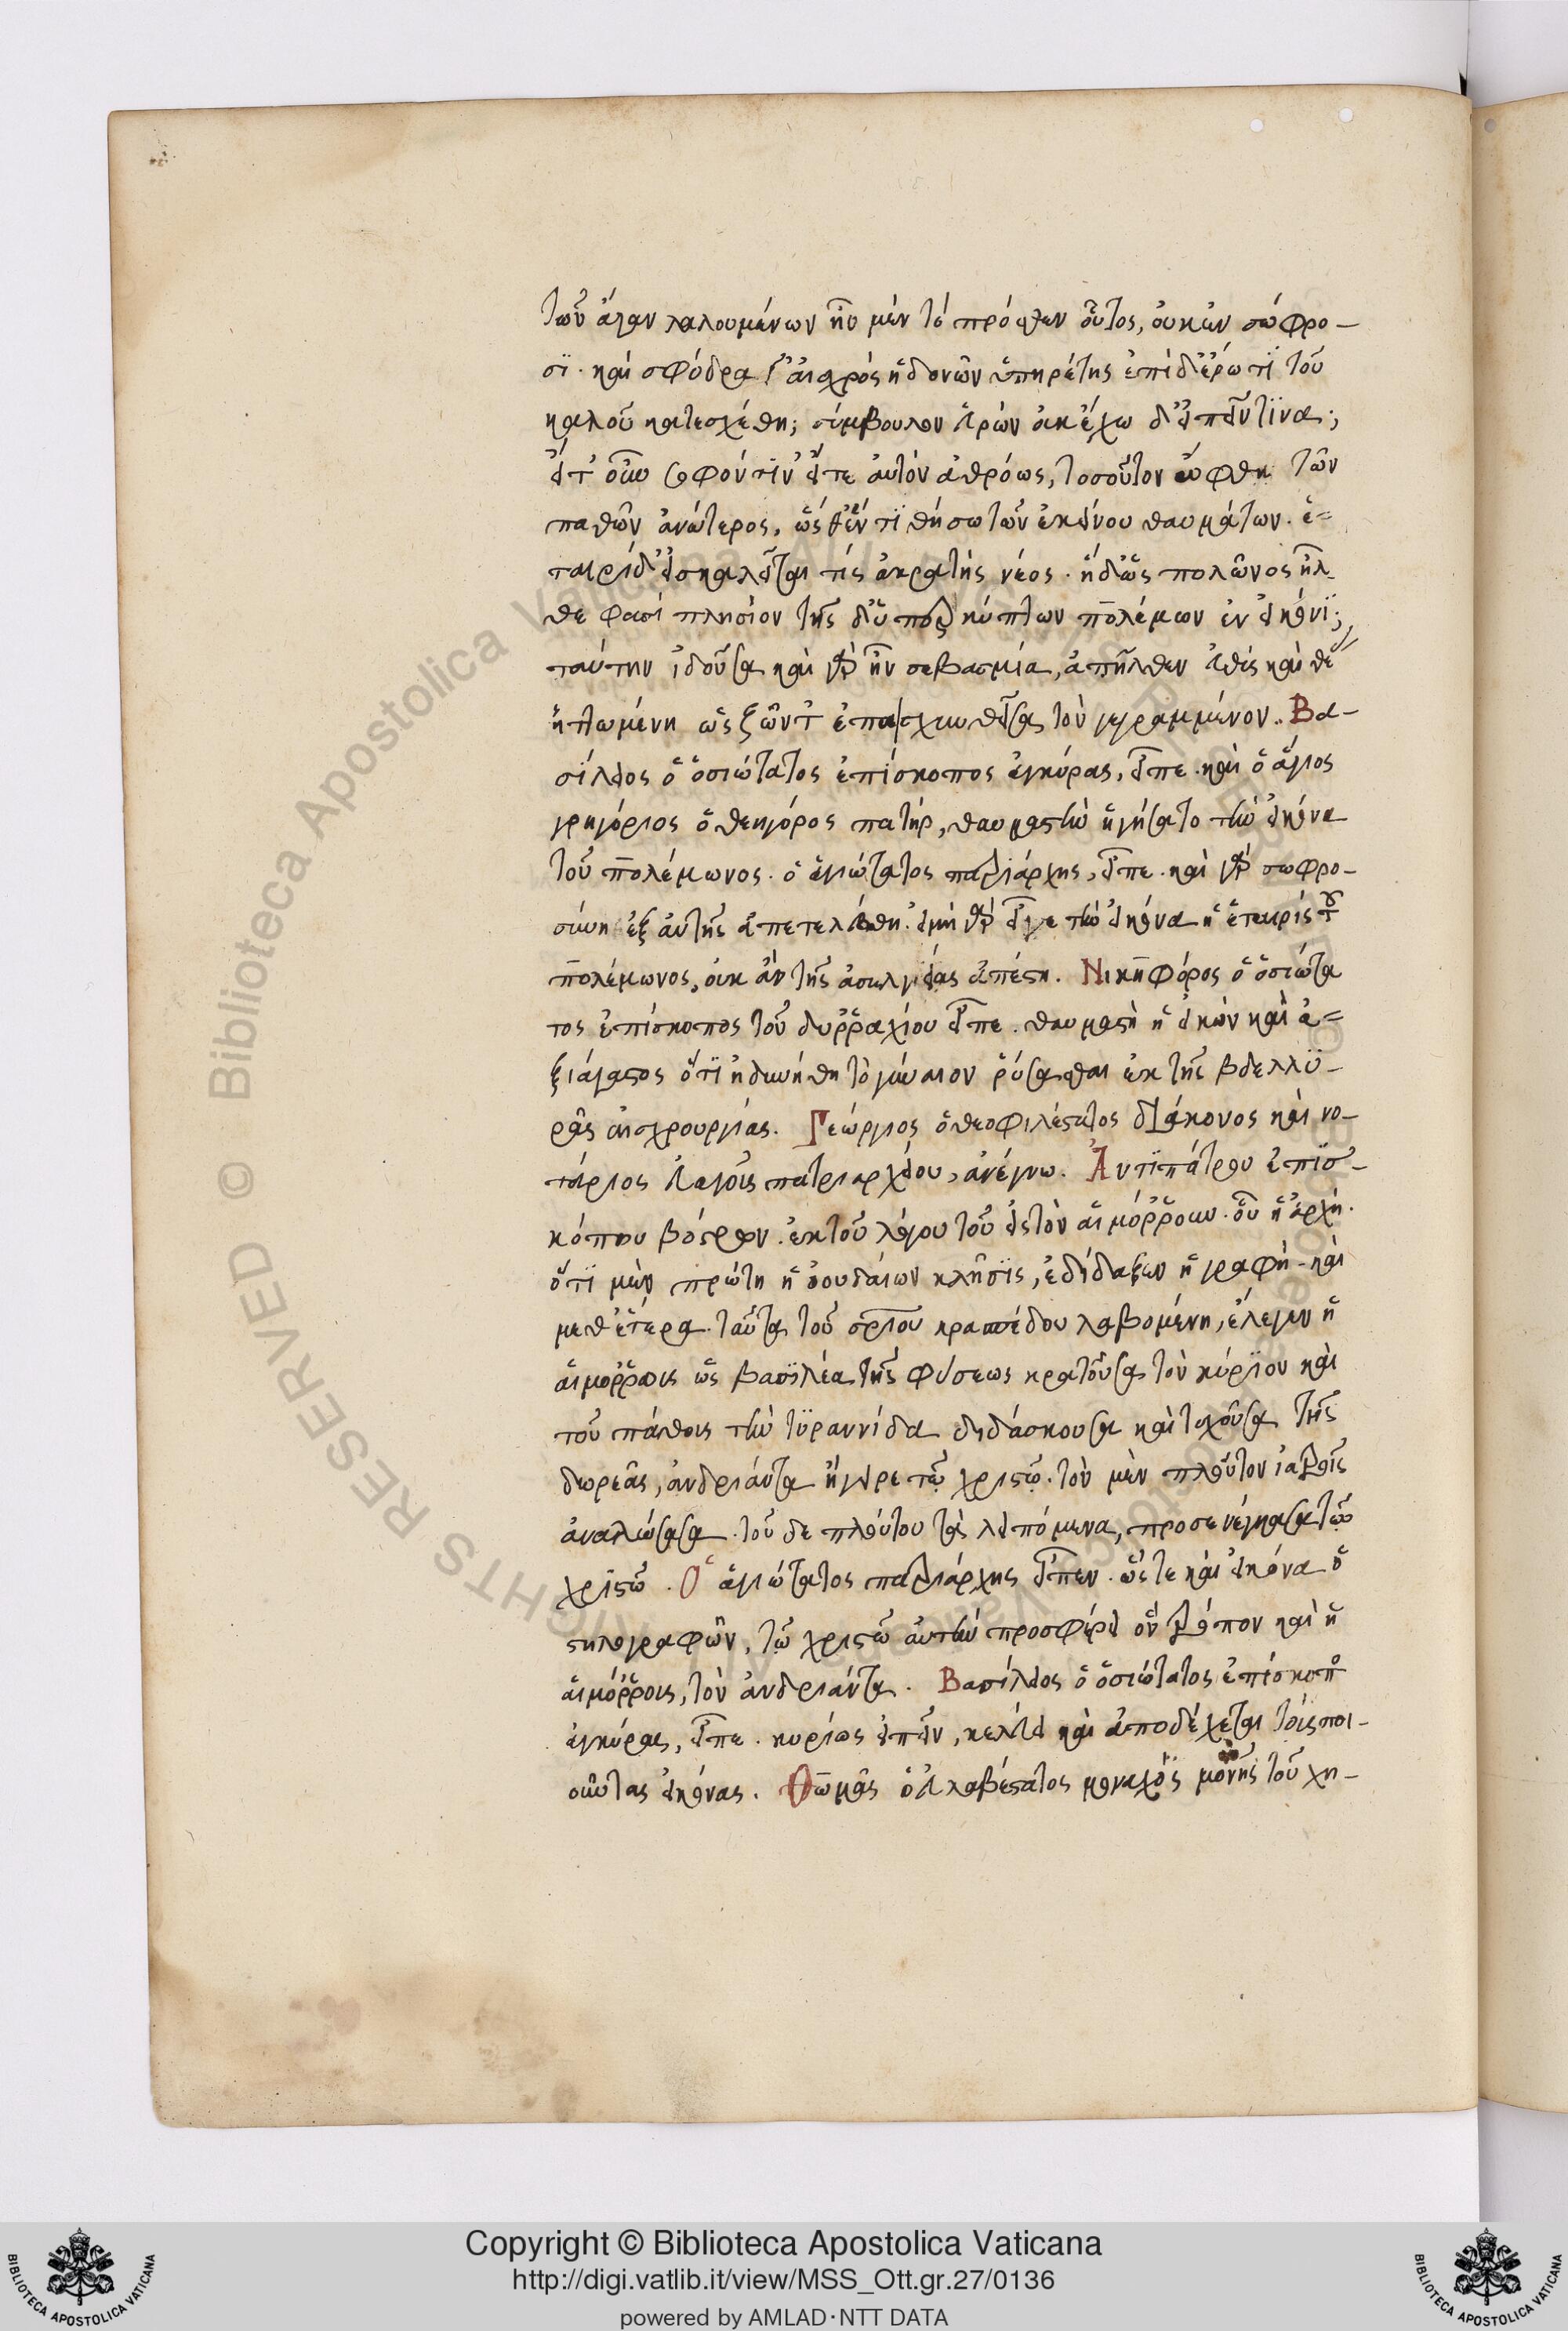 τῶν ἄγαν λαλουμένων ἦν μὲν τὸ πρόσθεν οὗτος, οὐκ ἐν σώφρο-
σϊ. καὶ σφόδρα γ' αἰσχρὸς ἡδονῶν ὑπηρέτης ἐπεὶ δ' ἔρωτϊ τοῦ
καλοῦ κατεσχέθη; σύμβουλον εὑρὼν οὐκ ἔχω δ' εἰπεῖν τίνα;
εἴτ' οὖν σοφόν τϊν' εἴτε αὐτὸν ἀθρόως, τοσοῦτον ὤφθη τῶν
παθῶν ἀνώτερος, ὥς θ' ἕν τϊ θήσω τῶν ἐκείνου θαυμάτων. ἑ-
ταιρίδ' εἰσκαλεῖται τίς ἀκρατὴς νέος. ἡ δ' ὡς πυλῶνος ἦλ-
θε φασὶ πλησίον τῆς δ' ὑπερκύπτων πολέμων ἐν εἰκόνϊ;
ταύτην ἰδοῦσα καὶ γὰρ ἦν σεβασμία, ἀπῆλθεν εὐθὺς καὶ θέ
ἡττωμένη ὡς ζῶντ' ἐπαισχυνθεῖσα τὸν γεγραμμένον. Βα-
σίλειος ὁ ὁσιώτατος ἐπίσκοπος ἀγκύρας, εἶπε. καὶ ὁ ἅγιος
γρηγόριος ὁ θεηγόρος πατήρ, θαυμαστὴν ἡγήσατο τὴν εἰκόνα
τοῦ πολέμωνος. ὁ ἁγιώτατος πατριάρχης, εἶπε. καὶ γὰρ σωφρο-
σύνη ἐξ αὐτῆς ἀπετελέσθη. εἰ μὴ γὰρ εἶδε τὴν εἰκόνα ἡ ἑταιρὶς τοῦ
πολέμωνος, οὐκ ἂν τῆς ἀσελγείας ἀπέστη. Νικηφόρος ὁ ὁσιώτα
τος ἐπίσκοπος τοῦ δυρραχίου εἶπε. θαυμαστὴ ἡ εἰκὼν καὶ ἀ-
ξιάγαστος ὅτϊ ἠδυνήθη τὸ γύναιον ῥύσασθαι ἐκ τῆς βδελλϋ-
ρᾶς αἰσχρουργίας. Γεώργιος ὁ θεοφιλέστατος διάκονος καὶ νο-
τάριος εὐαγοῦς πατριαρχείου, ἀνέγνω. Ἀντϊπάτρου ἐπϊσ-
κόπου βόστρων. ἐκ τοῦ λόγου τοῦ εἰς τὸν αἱμόρρουν. οὗ ἡ ἀρχή.
ὅτϊ μὲν πρώτη ἡ ἰουδαίων κλῆσϊς, ἐδίδαξεν ἡ γραφή. καὶ
μεθ' ἕτερα. ταῦτα τοῦ σωτηρίου κρασπέδου λαβομένη, ἔλεγεν ἡ
αἱμόρρους ὡς βασϊλέα τῆς φύσεως κρατοῦσα τὸν κύρϊον καὶ
τοῦ πάθους τὴν τϋραννίδα διδάσκουσα καὶ τυχοῦσα τῆς
δωρεᾶς, ἀνδριάντα ἤγειρε τῷ χριστῷ. τὸν μὲν πλοῦτον ἰατροῖς
ἀναλώσασα. τοῦ δὲ πλούτου τὰ λειπόμενα, προσενέγκασα τῷ
χριστῷ. Ὁ ἁγιώτατος πατριάρχης εἶπεν. ὥστε καὶ εἰκόνα ὁ
στηλογραφῶν, τῷ χριστῷ αὐτὴν προσφέρει ὃν τρόπον καὶ ἡ
αἱμόρρους, τὸν ἀνδριάντα. Βασίλειος ὁ ὁσιώτατος ἐπίσκοπος
ἀγκύρας, εἶπε. κυρίως εἰπεῖν, κελεύει καὶ ἀποδέχεται τοὺς ποι-
οῦντας εἰκόνας. Θωμᾶς ὁ εὐλαβέστατος μοναχὸς μονῆς τοῦ χη-
Biblioteca Apostolica Vaticana
© ALL RIGHTS RESERVED
Copyright © Biblioteca Apostolica Vaticana
http://digi.vatlib.it/view/MSS_Ott.gr.27/0136
powered by AMLAD·NTT DATA
BIBLIOTECA APOSTOLICA VATICANA
BIBLIOTECA APOSTOLICA VATICANA